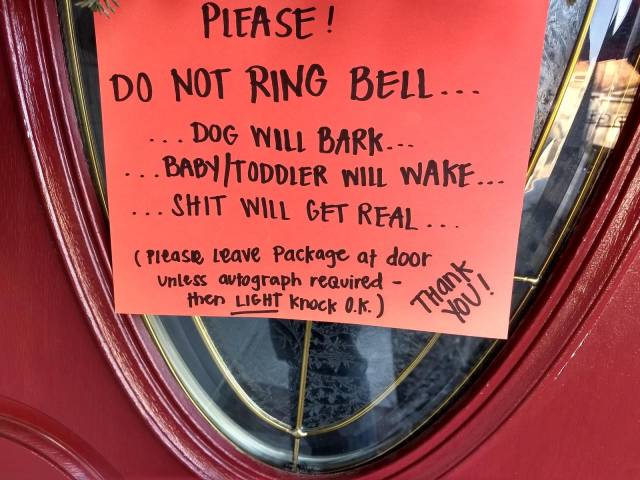 PLEASE!
DO NOT RING BELL...
...DOG WILL BARK...
...BABY/TODDLER WILL WAKE...
...SHIT WILL GET REAL...
(Please Leave Package at door
unless autograph required -
then LIGHT knock O.K.)
THANK
YOU!